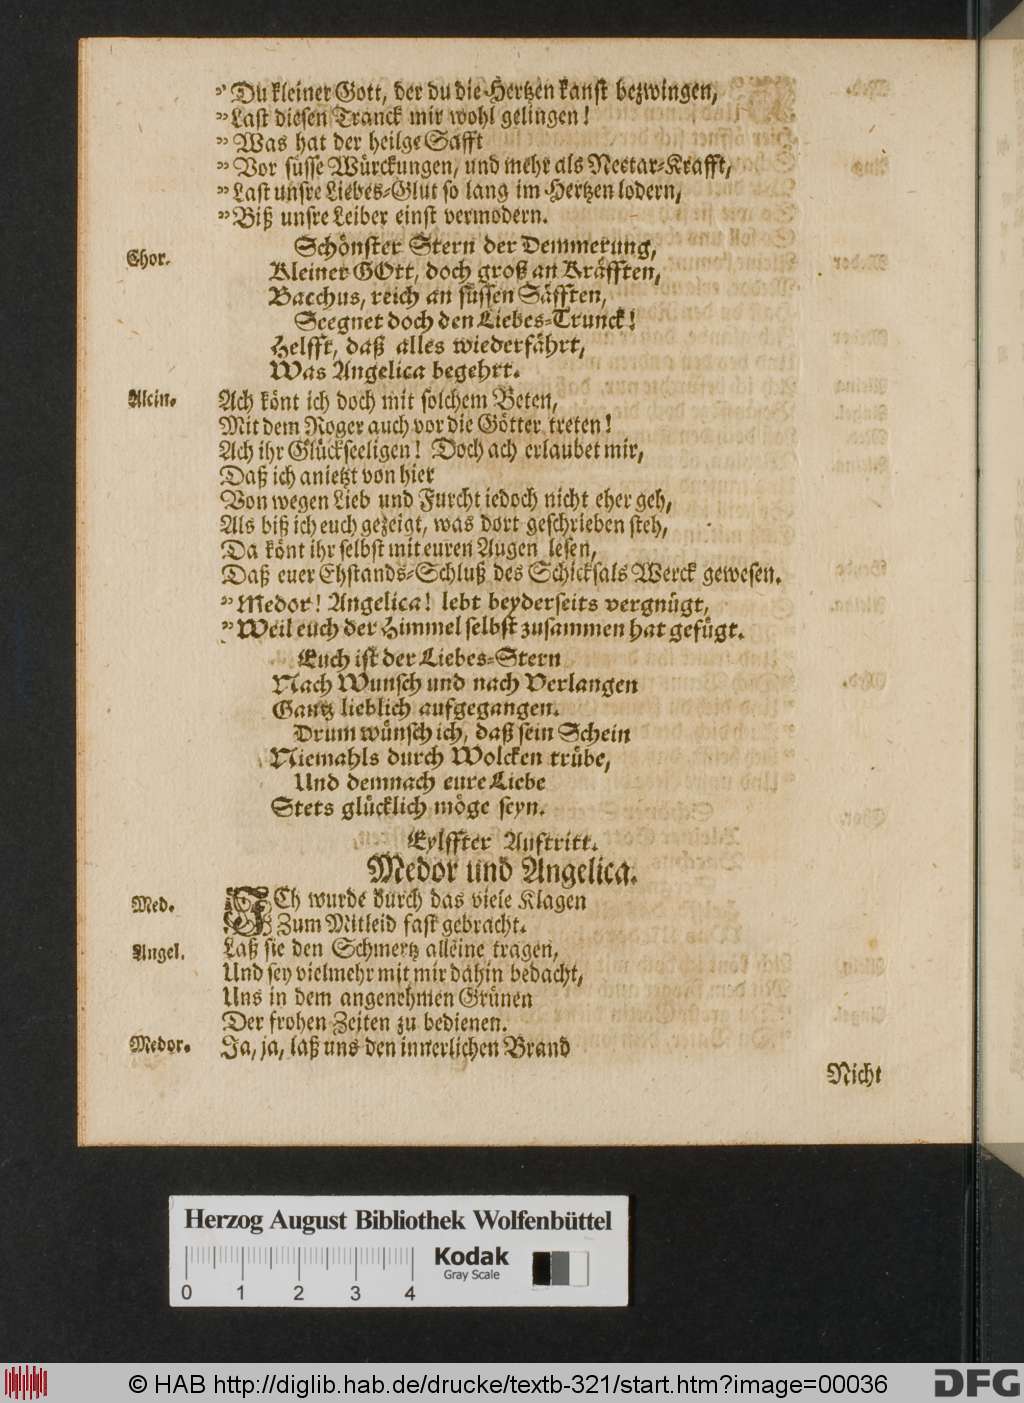 ” Du kleiner Gott, der du die Hertzen kanst bezwingen,
” Last diesen Tranck mir wohl gelingen!
” Was hat der heilge Safft
” Vor süsse Würckungen, und mehr als Nectar-Krafft,
” Last unsre Liebes-Glut so lang im Hertzen lodern,
” Biß unsre Leiber einst vermodern.
Chor. Schönster Stern der Demmerung,
Kleiner GOtt, doch groß an Kräfften,
Bacchus, reich an süssen Säfften,
Seegnet doch den Liebes-Trunck!
Helfft, daß alles wiederfährt,
Was Angelica begehrt.
Alcin. Ach könt ich doch mit solchem Beten,
Mit dem Roger auch vor die Götter treten!
Ach ihr Glückseeligen! Doch ach erlaubet mir,
Daß ich anietzt von hier
Von wegen Lieb und Furcht iedoch nicht eher geh,
Als biß ich euch gezeigt, was dort geschrieben steh,
Da könt ihr selbst mit euren Augen lesen,
Daß euer Ehstands-Schluß des Schicksals Werck gewesen.
” Medor! Angelica! lebt beyderseits vergnügt,
” Weil euch der Himmel selbst zusammen hat gefügt.
Euch ist der Liebes-Stern
Nach Wunsch und nach Verlangen
Gantz lieblich aufgegangen.
Drum wünsch ich, daß sein Schein
Niemahls durch Wolcken trübe,
Und demnach eure Liebe
Stets glücklich möge seyn.
Eylffter Auftritt.
Medor und Angelica.
Med. ICh wurde durch das viele Klagen
Zum Mitleid fast gebracht.
Angel. Laß sie den Schmertz alleine tragen,
Und sey vielmehr mit mir dahin bedacht,
Uns in dem angenehmen Grünen
Der frohen Zeiten zu bedienen.
Medor. Ja, ja, laß uns den innerlichen Brand
Nicht
Herzog August Bibliothek Wolfenbüttel
Kodak
Gray Scale
0 1 2 3 4
© HAB http://diglib.hab.de/drucke/textb-321/start.htm?image=00036
DFG